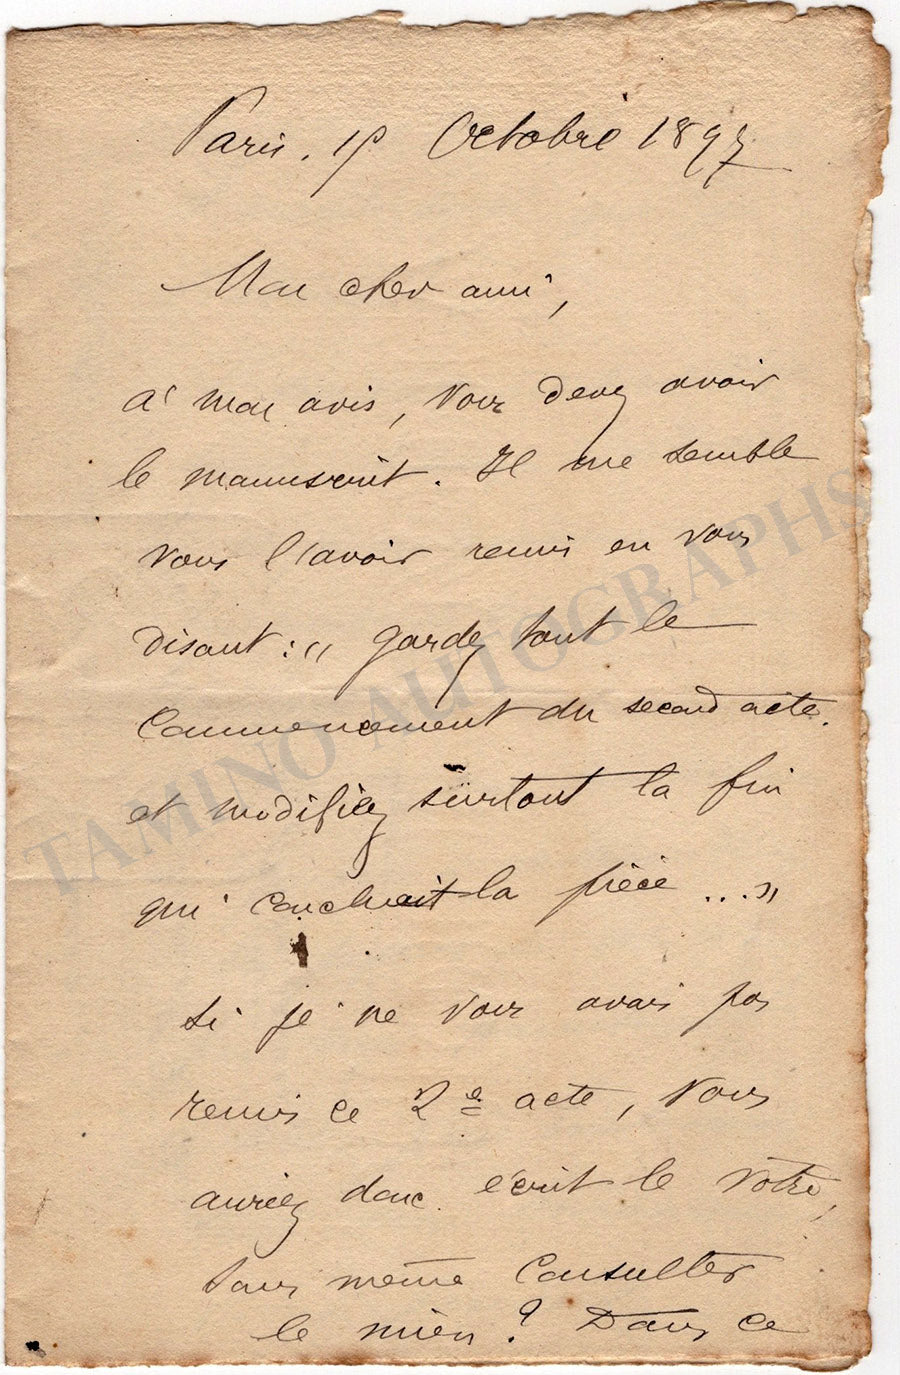 Paris. 19 Octobre 1897
Mon cher ami,
A mon avis, vous devez avoir
le manuscrit. Il me semble
vous l'avoir remis en vous
disant : " gardez tout le
commencement du second acte.
et modifiez surtout la fin
qui concluait la pièce ... "
Si je ne vous avais pas
remis ce 2e acte, vous
auriez donc écrit le vôtre,
sans même consulter
le mien ? Dans ce
TAMINO AUTOGRAPHS